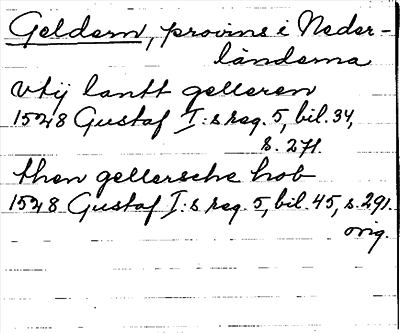 Geldern, provins i Neder-
länderna
vtij lantt gelleren
1528 Gustaf I:s reg. 5, bil. 34,
s. 271.
then gellersche hob
1528 Gustaf I:s reg. 5, bil. 45, s. 291.
orig.